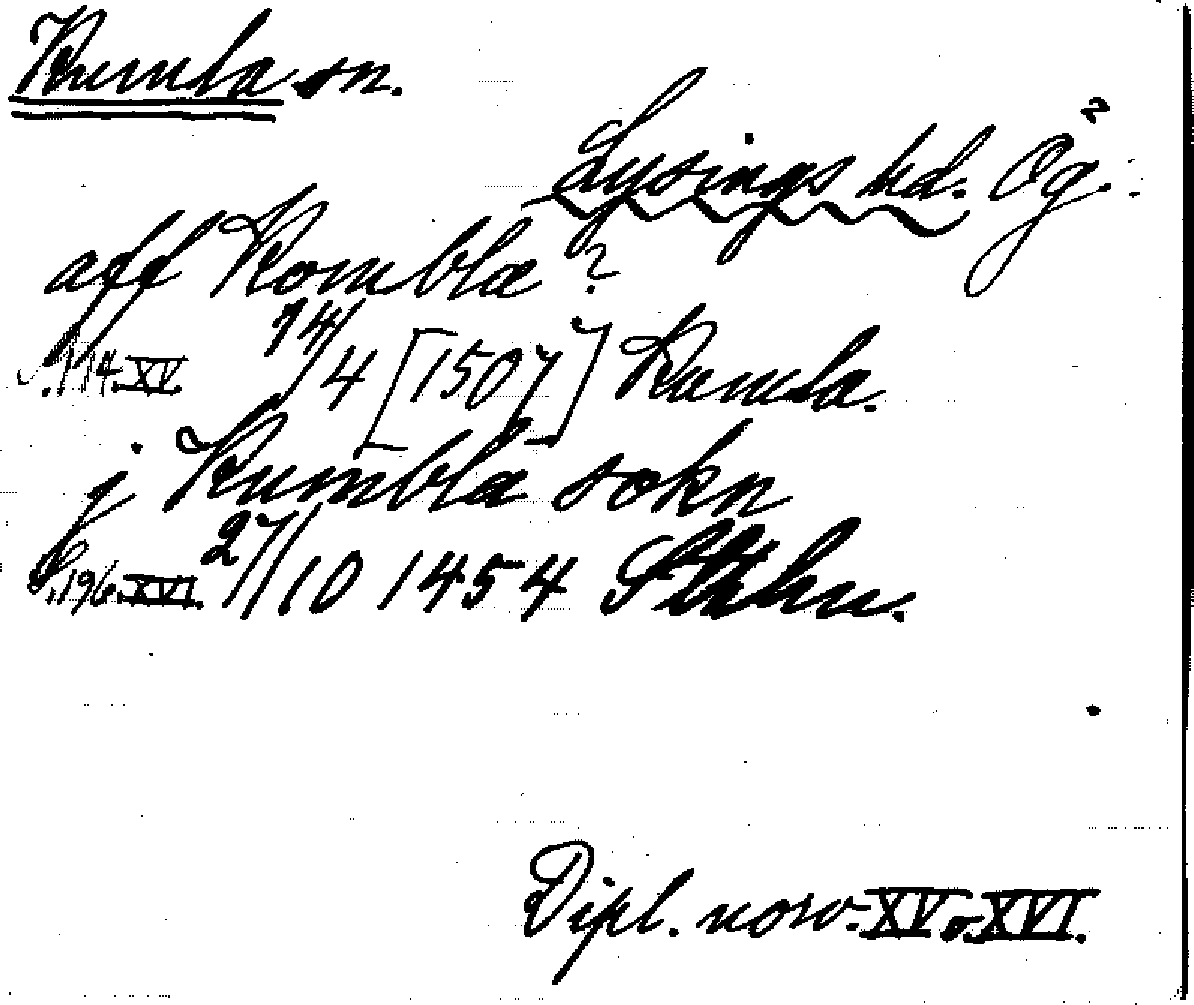 Kumla sn.
Lysings hd. Ög.
aff Komblæ?
s. 114. XV. 14/4 [1507] Kumla.
j Kumbla sokn
s. 196. XVI. 27/10 1454
Dipl. norv. XV o. XVI.